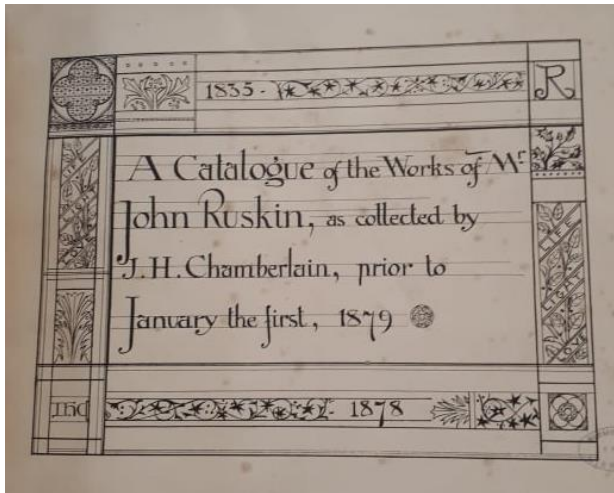 1835 -
R
A Catalogue of the Works of Mr
John Ruskin, as collected by
J. H. Chamberlain, prior to
January the first, 1879
LIFE
LIGHT
LOVE
JHC
1878